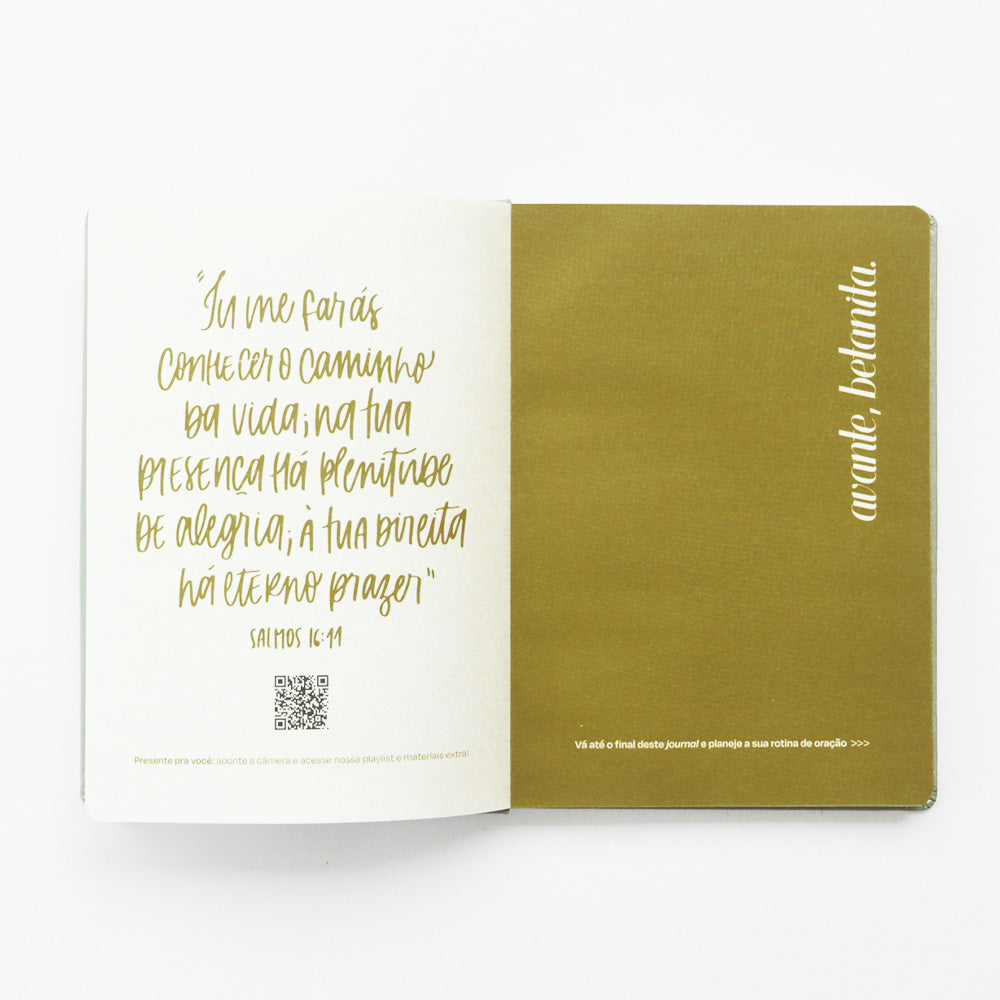 "Tu me farás
conhecer o caminho
da vida; na tua
presença há plenitude
de alegria; à tua direita
há eterno prazer"
SALMOS 16:11
Presente pra você: aponte a câmera e acesse nossa playlist e materiais extra!
avante, betanita.
Vá até o final deste journal e planeje a sua rotina de oração >>>